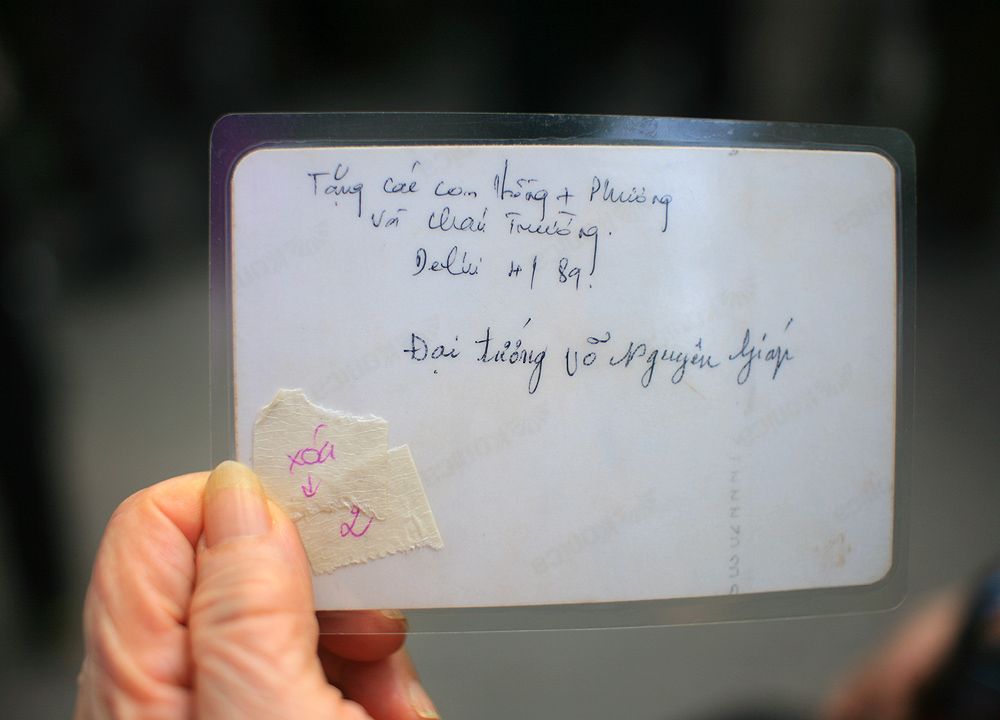 Tặng các con Hồng + Phương
và cháu Trường.
Delhi 4/89.
Đại tướng Võ Nguyên Giáp
xóa
↓
2